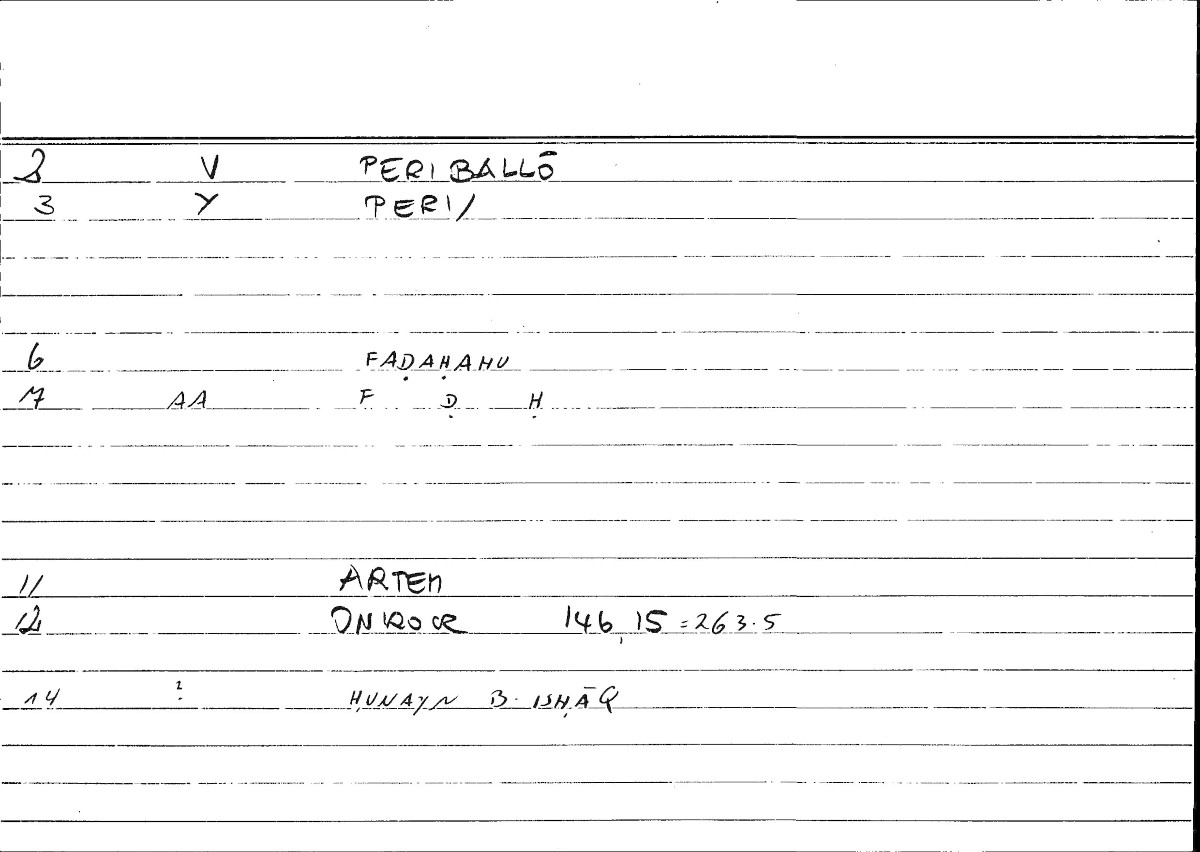 2 V PERIBALLŌ
3 Y PERI/
6 FAḌAḤAHU
7 AA F Ḍ Ḥ
11 ARTEM
12 ONIROCR 146,15 = 263.5
14 ? ḤUNAYN B. ISḤĀQ